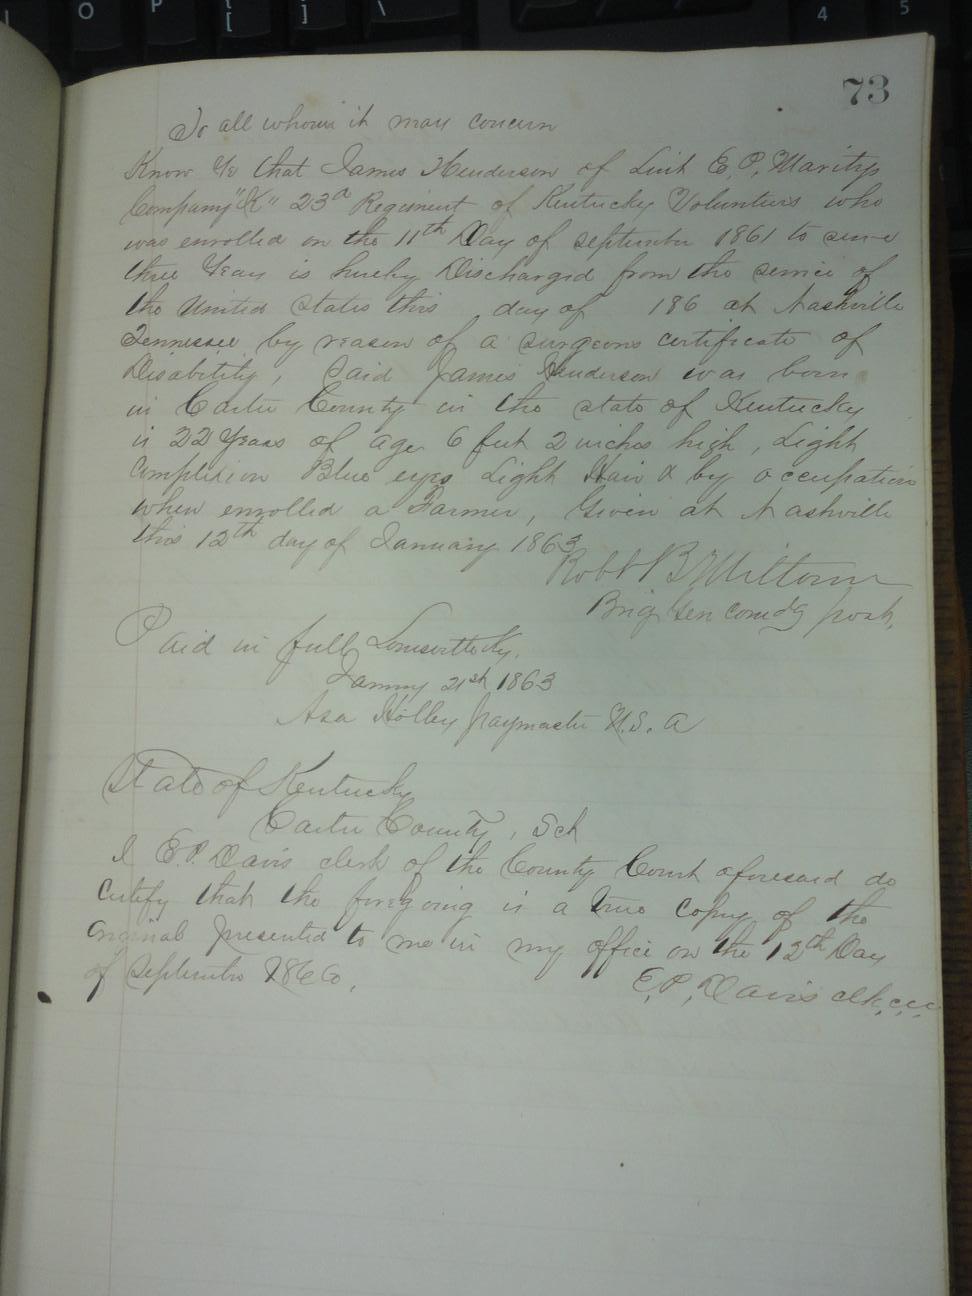 73
To all whom it may concern
Know Ye that James Henderson of Lieut E. P.
Company "K" 23d Regiment of Kentucky Volunteers who
was enrolled on the 11th Day of september 1861 to serve
three Years is hereby Discharged from the service of
the United States this day of 186 at Nashville
Tennessee by reason of a surgeons certificate of
Disability, Said James Henderson was born
in Carter County in the state of Kentucky
is 22 Years of age 6 feet 2 inches high, Light
Complexion Blue eyes Light Hair & by occupation
when enrolled a Farmer, Given at Nashville
this 12th day of January 1863
Robt B Miltorn
Brig Gen comdg post,
Paid in full Louisville Ky.
Janury 21st 1863
Asa Holley paymaster U.S. A
State of Kentucky
Carter County, Sct
I E.P. Davis clerk of the County Court aforesaid do
Certify that the foregoing is a true Copy of the
original presented to me in my office on the 12th Day
of September 1866,
E. P. Davis clk, c,c,c,